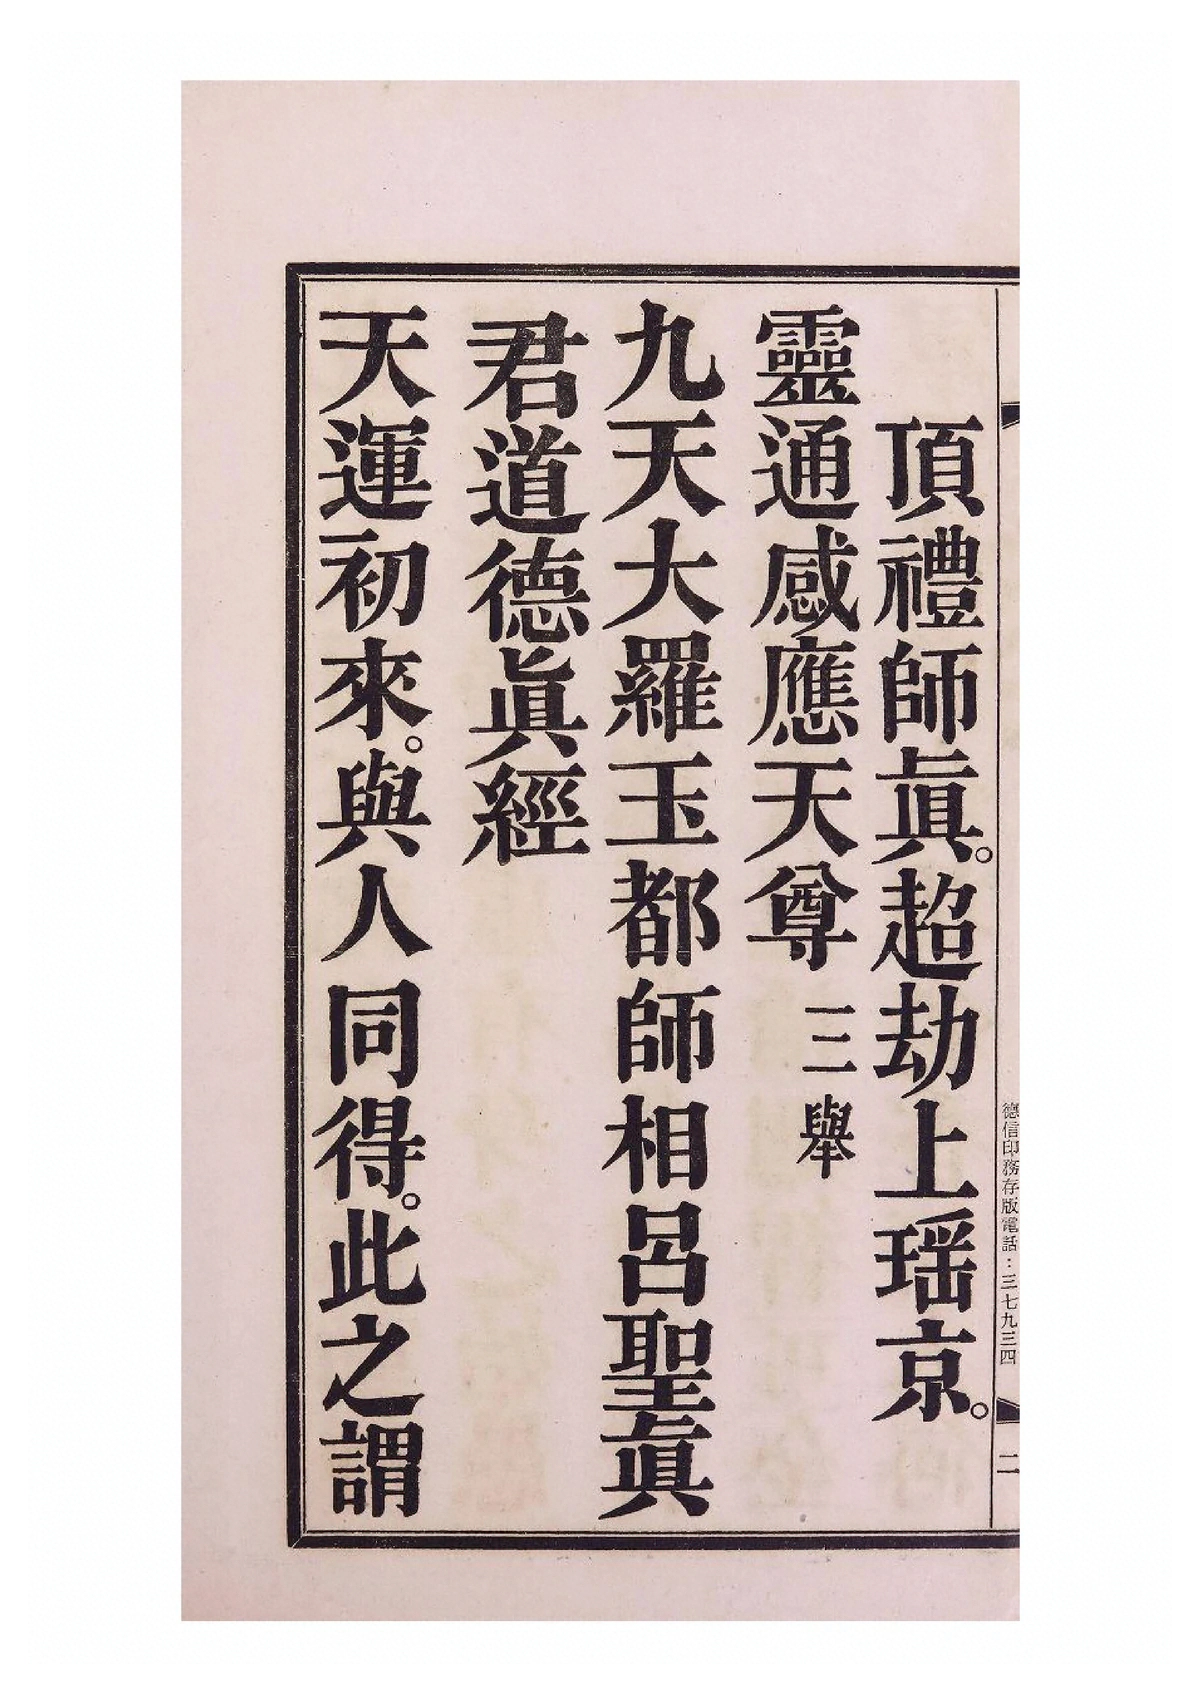 德信印務存版電話：三七九三四
二
頂禮師眞。超劫上瑶京。
靈通感應天尊 三舉
九天大羅玉都師相呂聖眞
君道德眞經
天運初來。與人同得。此之謂